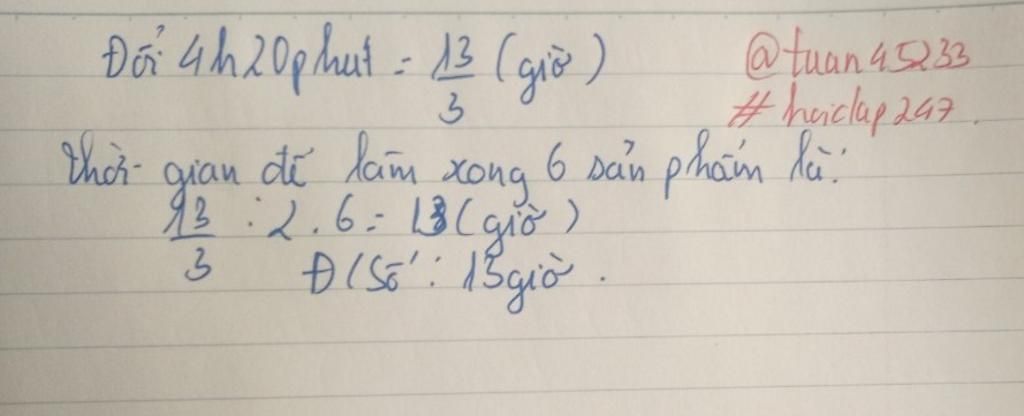 Đổi 4h20phut = 13/3 (giờ)
@tuan45233
# hoidap247
Thời gian để làm xong 6 sản phẩm là:
13/3 : 2 . 6 = 13 (giờ)
Đ/Số : 13 giờ .